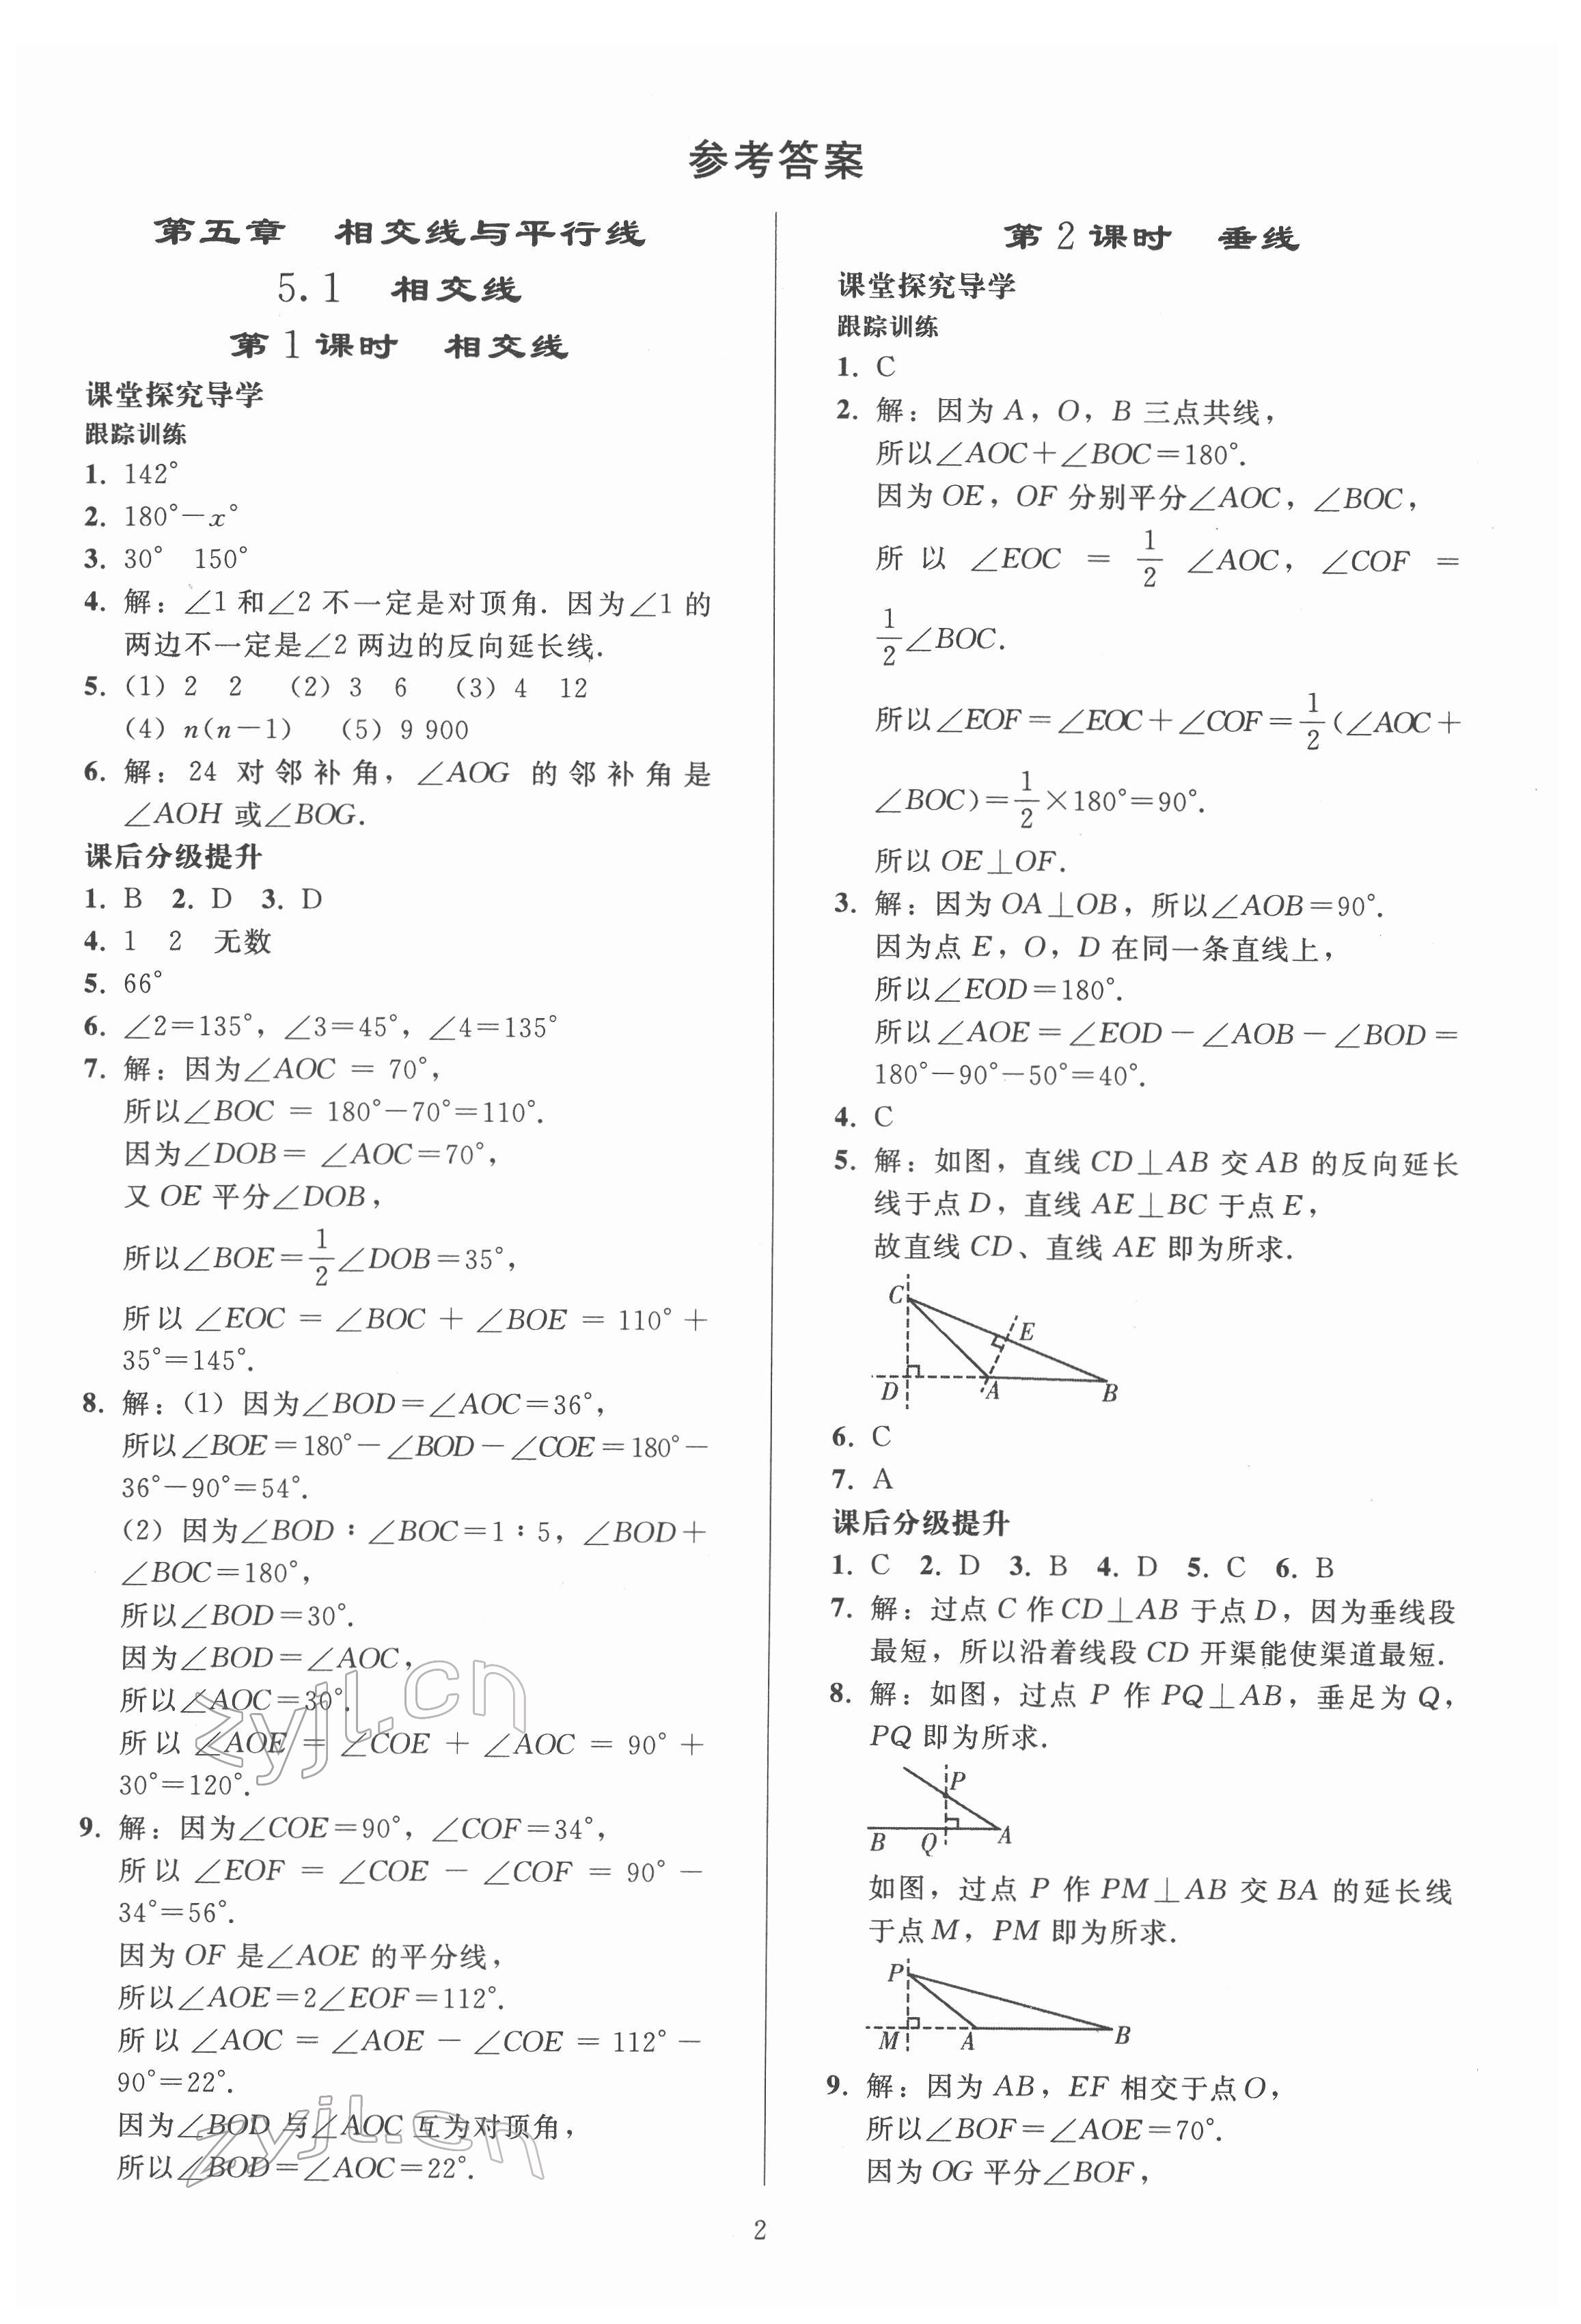 参考答案
第五章 相交线与平行线
5.1 相交线
第1课时 相交线
课堂探究导学
跟踪训练
1. 142°
2. 180°－x°
3. 30° 150°
4. 解：∠1和∠2不一定是对顶角. 因为∠1的
两边不一定是∠2两边的反向延长线.
5. (1) 2 2 (2) 3 6 (3) 4 12
(4) n(n－1) (5) 9 900
6. 解：24 对邻补角，∠AOG 的邻补角是
∠AOH 或∠BOG.
课后分级提升
1. B 2. D 3. D
4. 1 2 无数
5. 66°
6. ∠2＝135°，∠3＝45°，∠4＝135°
7. 解：因为∠AOC ＝ 70°，
所以∠BOC ＝ 180°－70°＝110°.
因为∠DOB＝ ∠AOC＝70°，
又 OE 平分∠DOB，
所以∠BOE＝1/2∠DOB＝35°，
所以 ∠EOC ＝ ∠BOC ＋ ∠BOE ＝ 110° ＋
35°＝145°.
8. 解：(1) 因为∠BOD＝∠AOC＝36°，
所以∠BOE＝180°－∠BOD－∠COE＝180°－
36°－90°＝54°.
(2) 因为∠BOD∶∠BOC＝1∶5，∠BOD＋
∠BOC＝180°，
所以∠BOD＝30°.
因为∠BOD＝∠AOC，
所以∠AOC＝30°.
所以 ∠AOE ＝ ∠COE ＋ ∠AOC ＝ 90° ＋
30°＝120°.
9. 解：因为∠COE＝90°，∠COF＝34°，
所以 ∠EOF ＝ ∠COE － ∠COF ＝ 90° －
34°＝56°.
因为 OF 是∠AOE 的平分线，
所以∠AOE＝2∠EOF＝112°.
所以 ∠AOC ＝ ∠AOE － ∠COE ＝ 112° －
90°＝22°.
因为∠BOD 与∠AOC 互为对顶角，
所以∠BOD＝∠AOC＝22°.
zyjl.cn
zyjl.cn
第2课时 垂线
课堂探究导学
跟踪训练
1. C
2. 解：因为 A，O，B 三点共线，
所以∠AOC＋∠BOC＝180°.
因为 OE，OF 分别平分∠AOC，∠BOC，
所以 ∠EOC ＝ 1/2 ∠AOC，∠COF ＝
1/2∠BOC.
所以∠EOF＝∠EOC＋∠COF＝1/2(∠AOC＋
∠BOC)＝1/2×180°＝90°.
所以 OE⊥OF.
3. 解：因为 OA⊥OB，所以∠AOB＝90°.
因为点 E，O，D 在同一条直线上，
所以∠EOD＝180°.
所以∠AOE＝∠EOD－∠AOB－∠BOD＝
180°－90°－50°＝40°.
4. C
5. 解：如图，直线 CD⊥AB 交 AB 的反向延长
线于点 D，直线 AE⊥BC 于点 E，
故直线 CD、直线 AE 即为所求.
C
E
D A B
6. C
7. A
课后分级提升
1. C 2. D 3. B 4. D 5. C 6. B
7. 解：过点 C 作 CD⊥AB 于点 D，因为垂线段
最短，所以沿着线段 CD 开渠能使渠道最短.
8. 解：如图，过点 P 作 PQ⊥AB，垂足为 Q，
PQ 即为所求.
P
B Q A
如图，过点 P 作 PM⊥AB 交 BA 的延长线
于点 M，PM 即为所求.
P
M A B
9. 解：因为 AB，EF 相交于点 O，
所以∠BOF＝∠AOE＝70°.
因为 OG 平分∠BOF，
2